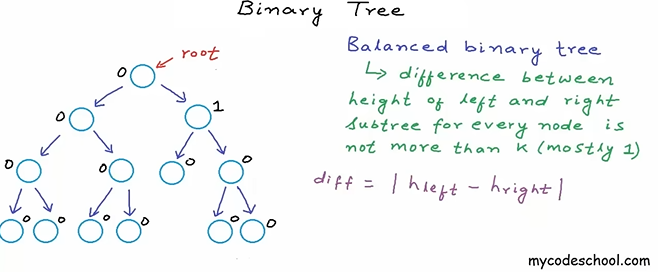 Binary Tree
root
0
0
1
0
0
0
0
0
0
0
0
0
0
Balanced binary tree
↳ difference between
height of left and right
subtree for every node is
not more than k (mostly 1)
diff = | hleft - hright |
mycodeschool.com